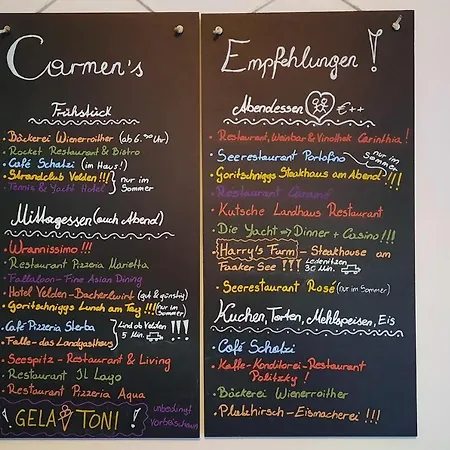 Carmen's
Frühstück
• Bäckerei Wienerroither (ab 6.00 Uhr)
• Rocket Restaurant & Bistro
• Café Schatzi (im Haus!)
• Strandclub Velden!!!
• Tennis & Yacht Hotel
nur im
Sommer
Mittagessen (auch Abend)
• Wrannissimo!!!
• Restaurant Pizzeria Marietta
• Fallaloon - Fine Asian Dining
• Hotel Velden - Bacherlwirt (gut & günstig)
• Goritschniggs Lunch am Tag!!! (nur im
Sommer)
• Café Pizzeria Sterba
• Falle - das Landgasthaus
Lind ob Velden
5 Min.
!!!
• Seespitz - Restaurant & Living
• Restaurant Il Lago
• Restaurant Pizzeria Aqua
! GELA TONI !
unbedingt
vorbeischaun
Empfehlungen!
Abendessen €++
• Restaurant, Weinbar & Vinothek Carinthia!
• Seerestaurant Portofino
nur im
Sommer
• Goritschniggs Steakhaus am Abend!!!
• Restaurant Caramé
• Kutsche Landhaus Restaurant
• Die Yacht => Dinner + Casino!!!
• Harry's Farm - Steakhouse am
Faaker See!!!
Ledenitzen
30 Min.
• Seerestaurant Rosé (nur im Sommer)
Kuchen, Torten, Mehlspeisen, Eis
• Café Schatzi
• Kaffe-Konditorei-Restaurant
Politzky!
• Bäckerei Wienerroither
• Platzhirsch - Eismacherei!!!